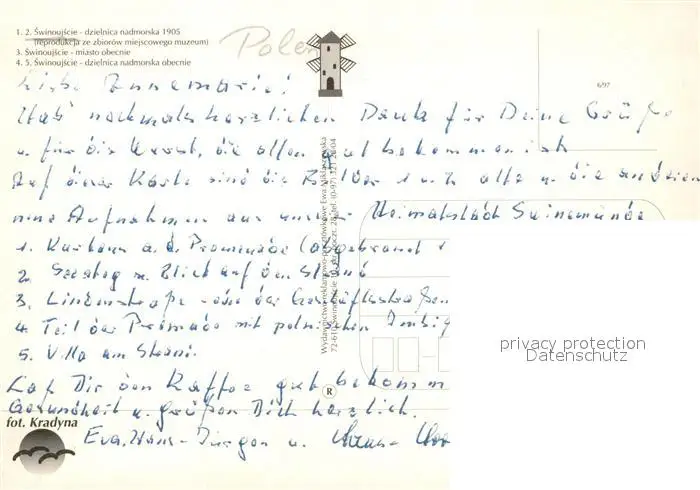 1. 2. Świnoujście - dzielnica nadmorska 1905
(reprodukcja ze zbiorów miejscowego muzeum)
3. Świnoujście - miasto obecnie
4. 5. Świnoujście - dzielnica nadmorska obecnie
Polen
6/97
Liebe Annemarie!
Hab nochmals herzlichen Dank für Deine Grüße
u. für die Wurst, die allen gut bekommen ist
Auf dieser Karte sind die Bilder 1 u. 2 alte u. die anderen
neue Aufnahmen aus unserer Heimatstadt Swinemünde
1. Kurhaus a. d. Promenade (abgebrannt
2. Seesteg m. Blick auf den Strand
3. Lindenstraße - eine der Geschäftsstraßen
4. Teil der Promenade mit polnischen
5. Villa am Strand.
Laß Dir den Kaffee gut bekomm
Gesundheit u. grüßen Dich herzlich.
Eva, Hans-Jürgen u.
Wydawnictwo reklamowo-pocztówkowe Ewa
72-610 Świnoujście
R
fot. Kradyna
privacy protection
Datenschutz